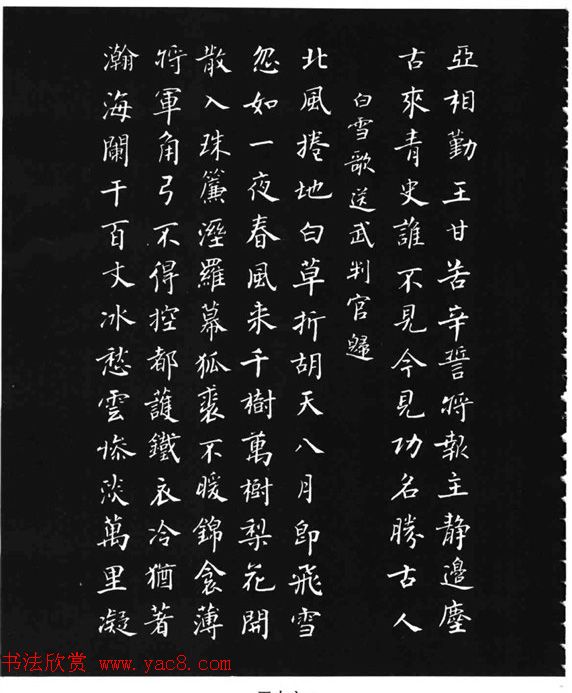 亞相勤王甘苦辛誓將報主静邉塵
古來青史誰不見今見功名勝古人
白雪歌送武判官歸
北風捲地白草折胡天八月即飛雪
忽如一夜春風来千樹萬樹梨花開
散入珠簾溼羅幕狐裘不暖錦衾薄
將軍角弓不得控都護鐵衣冷猶著
瀚海闌干百丈冰愁雲慘淡萬里凝
书法欣赏 www.yac8.com